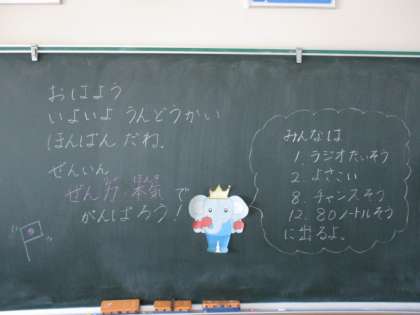 おはよう
いよいよ うんどうかい
ほんばん だね。
ぜんいん
ぜん力・本気で
がんばろう！
みんなは
1. ラジオたいそう
2. よさこい
8. チャンスそう
12. 80メートルそう
に出るよ。